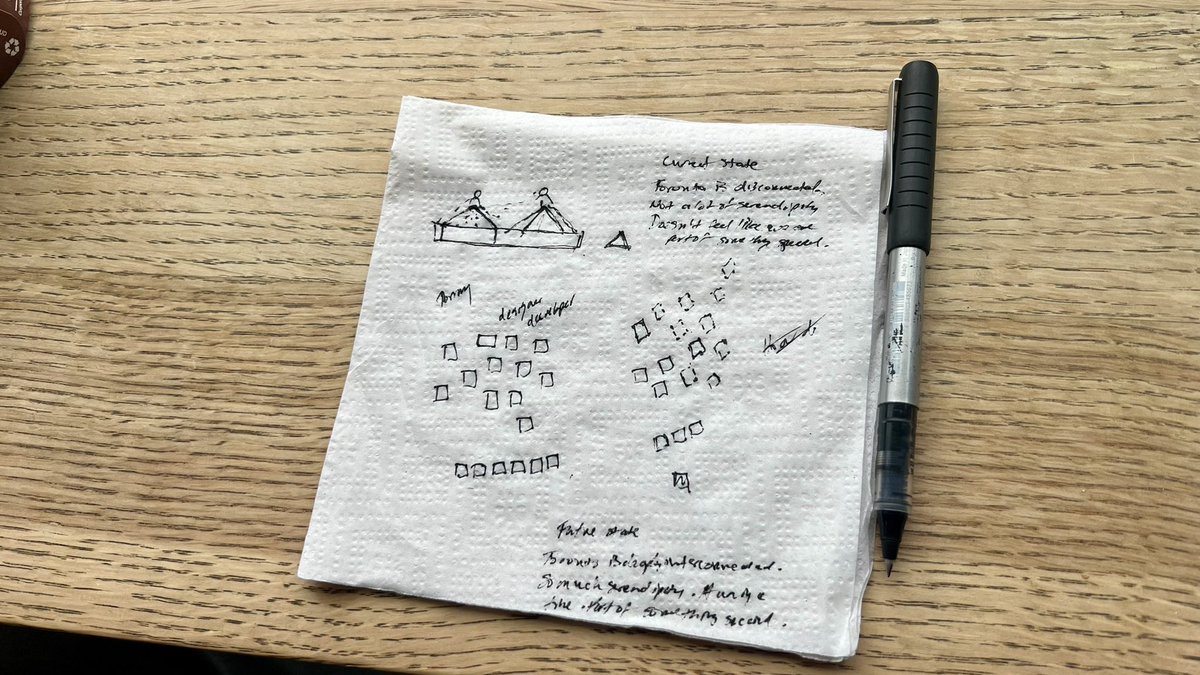 Current State
Toronto is disconnected.
Not a lot of serendipity
Doesn't feel like you are
part of something special.
designer
developer
Future state
Toronto is interconnected.
So much serendipity.
Part of something special.